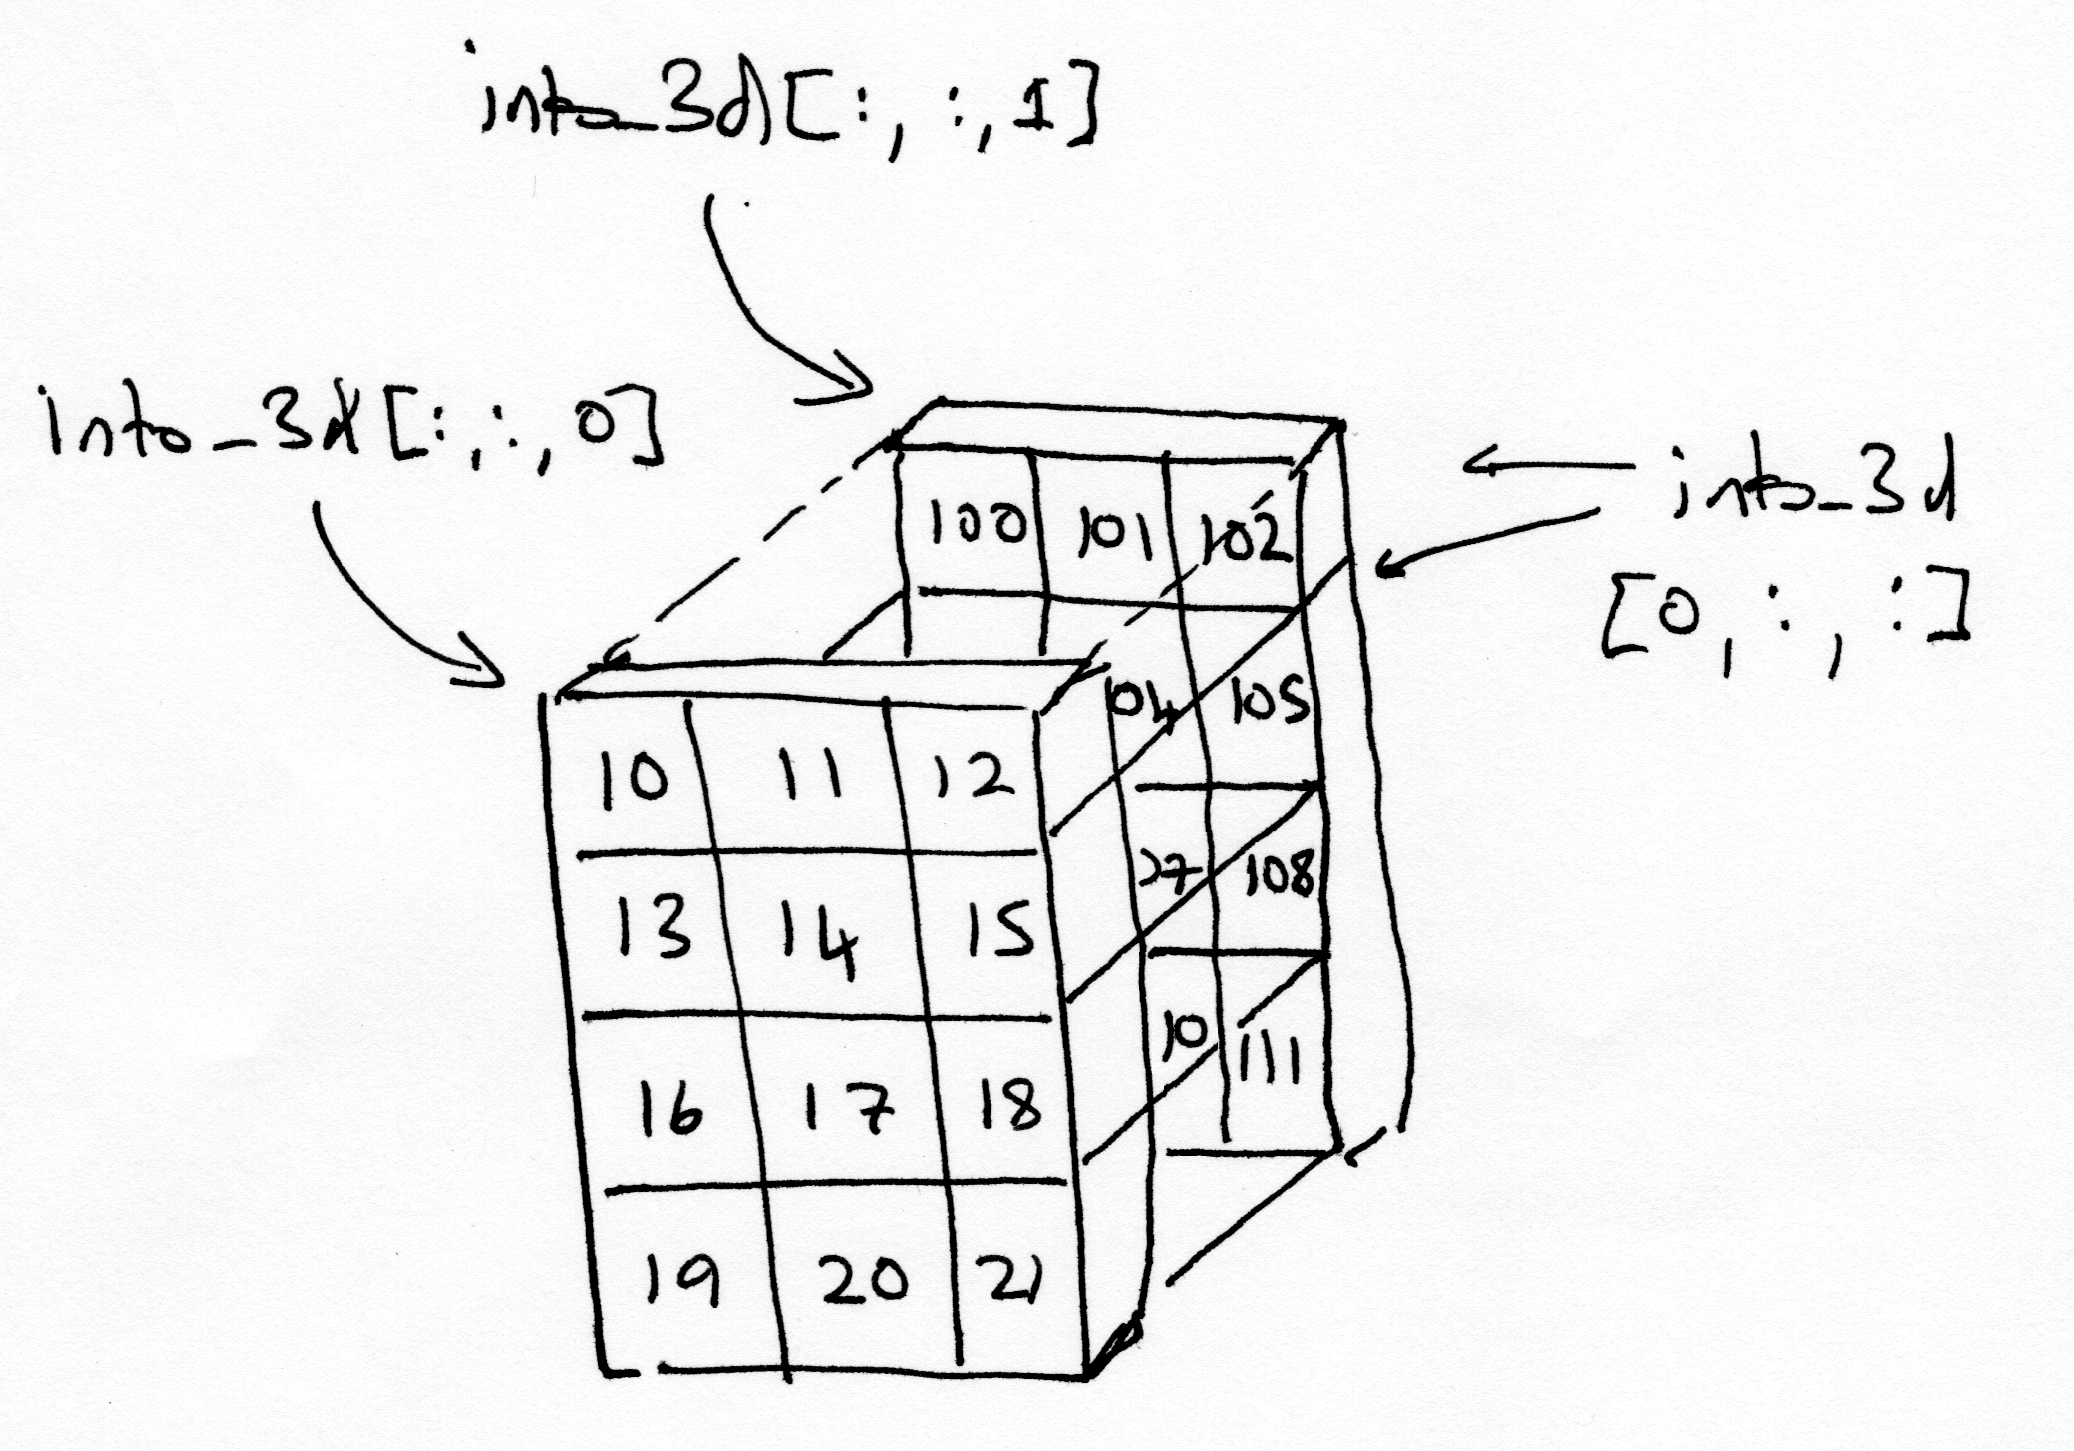 into_3d[:, :, 1]
into_3d[:, :, 0]
into_3d
[0, :, :]
100 101 102
104 105
07 108
10 111
10 11 12
13 14 15
16 17 18
19 20 21